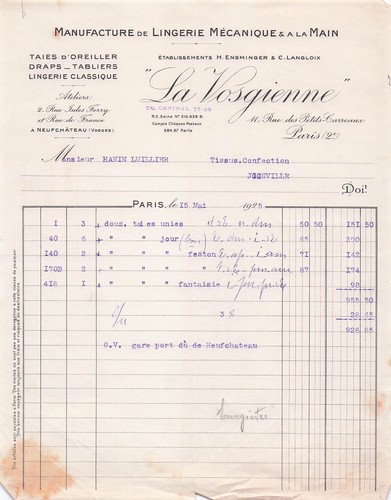 MANUFACTURE DE LINGERIE MÉCANIQUE & A LA MAIN
TAIES D'OREILLER
DRAPS _ TABLIERS
LINGERIE CLASSIQUE
ÉTABLISSEMENTS H. ENSMINGER & C. LANGLOIX
"La Vosgienne"
Ateliers:
2. Rue Jules Ferry
et Rue de France
A NEUFCHÂTEAU (VOSGES)
Tel. CENTRAL 77-08
R.C. Seine N° 215.839 B.
Compte Chèques Postaux
594.97 Paris
11. Rue des Petits-Carreaux
Paris (2e)
Monsieur HANIN LUILLIER Tissus.Confection
JŒVILLE
Doit
PARIS, le 15 Mai 1925
I 3 + douz. taies unies 50 50 151 50
40 6 + " " jour 65 390
140 2 + " " feston 71 0 142
170B 2 + " " " 87 174
418 1 + " " fantaisie 98
955 50
3% 28 65
926 85
G.V. gare port dû de Neufchateau
Enregistré